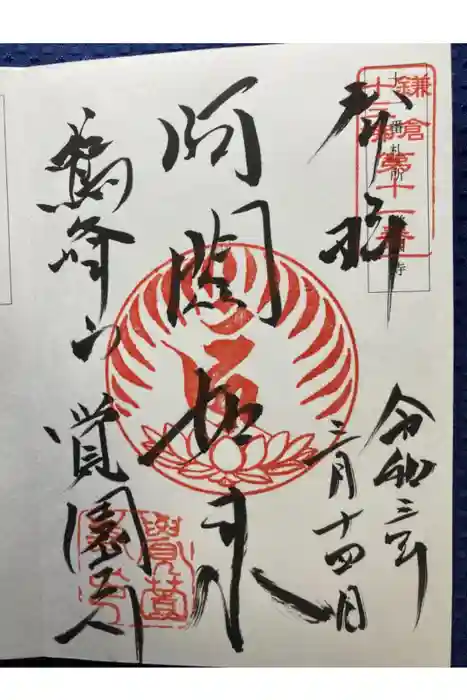 鎌倉
十三佛
第十一番
十一番札所 覚園寺
奉拝
令和三年
三月十四日
阿閦如来
鷲峰山
覚園寺